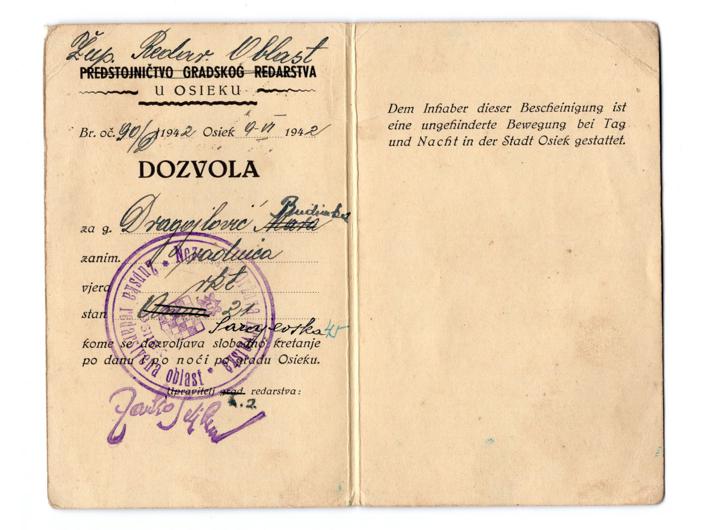 Žup. Redar. Oblast
PREDSTOJNIČTVO GRADSKOG REDARSTVA
U OSIEKU
Br. oč. 90/ 1942 Osiek 9-VI 1942
DOZVOLA
za g. Dragojlović Mata
zanim. radnica
vjera rkt
stan 21
Sarajevska
kome se dozvoljava slobodno kretanje
po danu i po noći po gradu Osieku.
Upravitelj grad. redarstva:
redarstvena oblast
Dem Inhaber dieser Bescheinigung ist
eine ungehinderte Bewegung bei Tag
und Nacht in der Stadt Osiek gestattet.